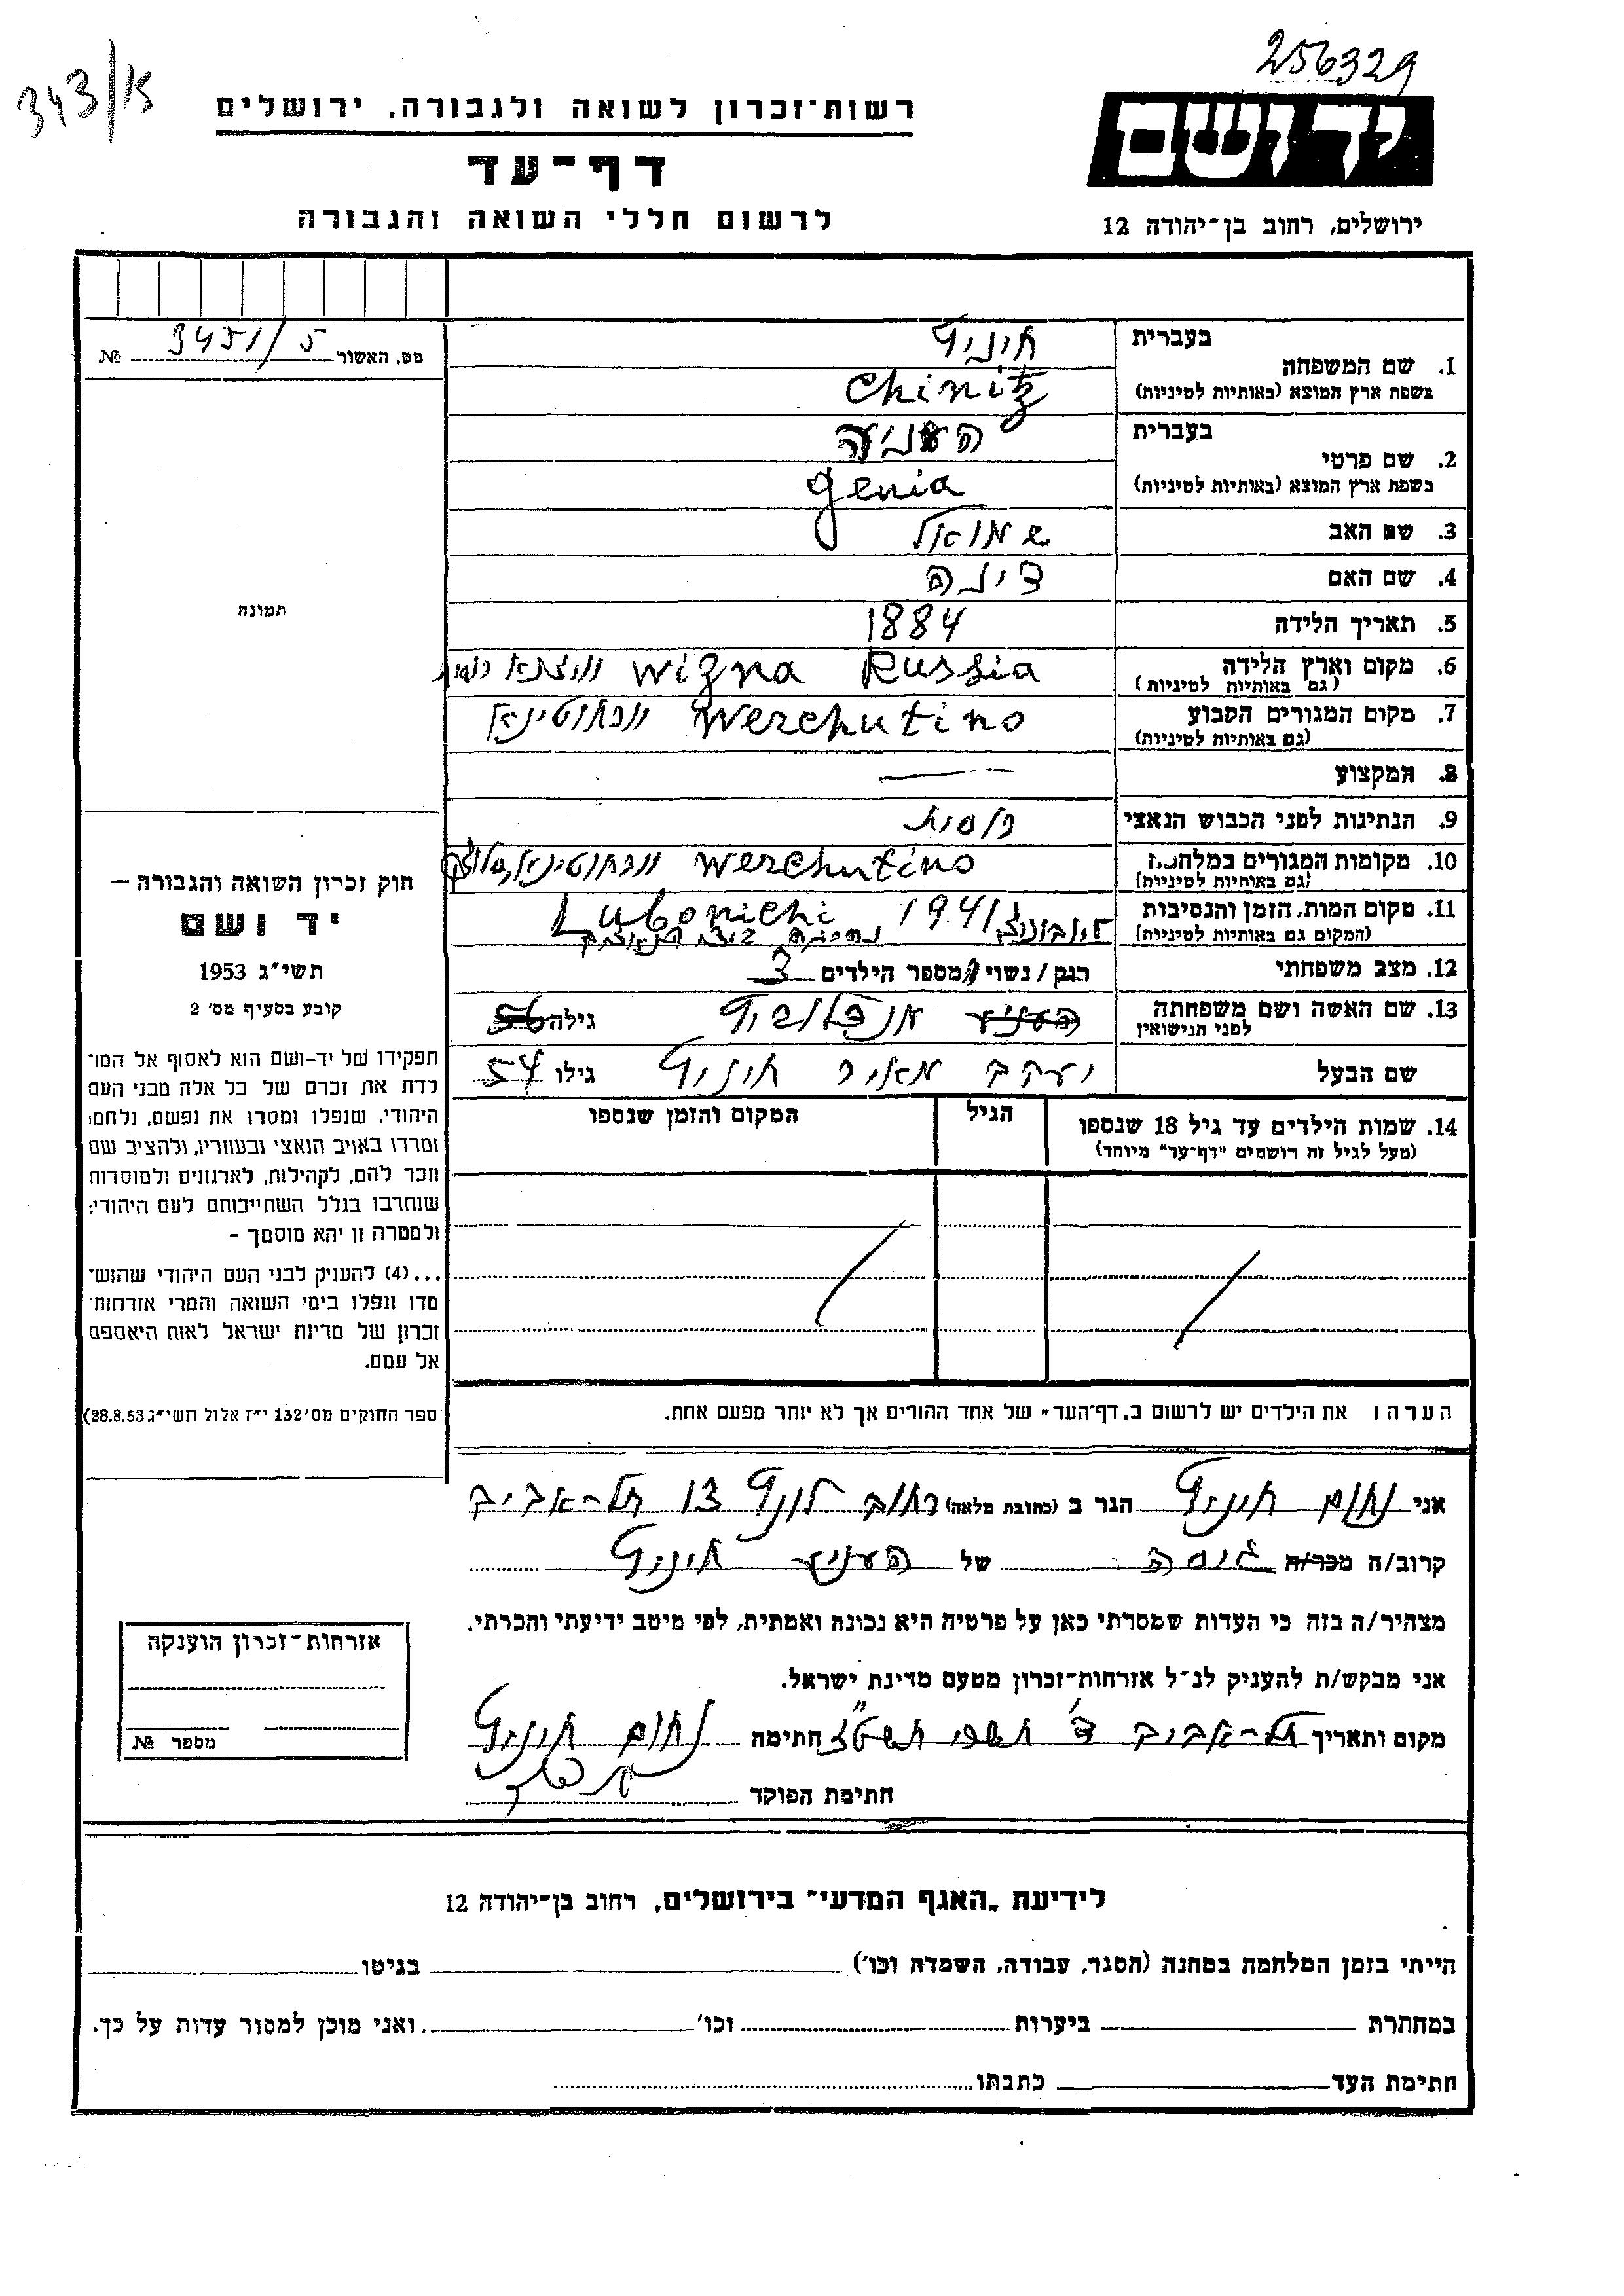 256329
343/א
יד ושם
רשות-זכרון לשואה ולגבורה, ירושלים
דף-עד
לרשום חללי השואה והגבורה
ירושלים, רחוב בן-יהודה 12
מס. האשור 3451/5 №
תמונה
בעברית חיניץ
1. שם המשפחה
בשפת ארץ המוצא (באותיות לטיניות) Chinitz
בעברית
2. שם פרטי
בשפת ארץ המוצא (באותיות לטיניות) genia
3. שם האב שמואל
4. שם האם דינה
5. תאריך הלידה 1884
6. מקום וארץ הלידה Wizna Russia
(גם באותיות לטיניות)
7. מקום המגורים הקבוע Werchutino ורכוטינא
(גם באותיות לטיניות)
8. המקצוע —
9. הנתינות לפני הכבוש הנאצי רוסית
10. מקומות המגורים במלחמה Werchutino
(גם באותיות לטיניות)
11. מקום המות, הזמן והנסיבות 1941 Lubonichi
(המקום גם באותיות לטיניות)
12. מצב משפחתי רוק / נשוי מספר הילדים 3
13. שם האשה ושם משפחתה
לפני הנישואין גילה 56
שם הבעל יעקב מאיר חיניץ גילו 54
14. שמות הילדים עד גיל 18 שנספו הגיל המקום והזמן שנספו
(מעל לגיל זה רושמים "דף-עד" מיוחד)
הערה: את הילדים יש לרשום ב„דף-העד" של אחד ההורים אך לא יותר מפעם אחת.
חוק זכרון השואה והגבורה —
יד ושם
תשי"ג 1953
קובע בסעיף מס' 2
תפקידו של יד-ושם הוא לאסוף אל המו־
לדת את זכרם של כל אלה מבני העם
היהודי, שנפלו ומסרו את נפשם, נלחמו
ומרדו באויב הנאצי ובעוזריו, ולהציב שם
וזכר להם, לקהילות, לארגונים ולמוסדות
שנחרבו בגלל השתייכותם לעם היהודי;
ולמטרה זו יהא מוסמך –
...(4) להעניק לבני העם היהודי שהוש־
מדו ונפלו בימי השואה והמרי אזרחות־
זכרון של מדינת ישראל לאות היאספם
אל עמם.
ספר החוקים מס' 132 י"ז אלול תשי"ג 28.8.53)
אני נחום חיניץ הגר ב (כתובת מלאה) רחוב תל-אביב
קרוב/ה מכר/ה גיסה של העניע חיניץ
מצהיר/ה בזה כי העדות שמסרתי כאן על פרטיה היא נכונה ואמתית, לפי מיטב ידיעתי והכרתי.
אני מבקש/ת להעניק לנ"ל אזרחות-זכרון מטעם מדינת ישראל.
מקום ותאריך תל-אביב ד' תשרי חתימה נחום חיניץ
חתימת הפוקד
אזרחות-זכרון הוענקה
מספר №
לידיעת „האגף המדעי" בירושלים, רחוב בן-יהודה 12
הייתי בזמן המלחמה במחנה (הסגר, עבודה, השמדה וכו') בגיטו
במחתרת ביערות וכו' ואני מוכן למסור עדות על כך.
חתימת העד כתבתו